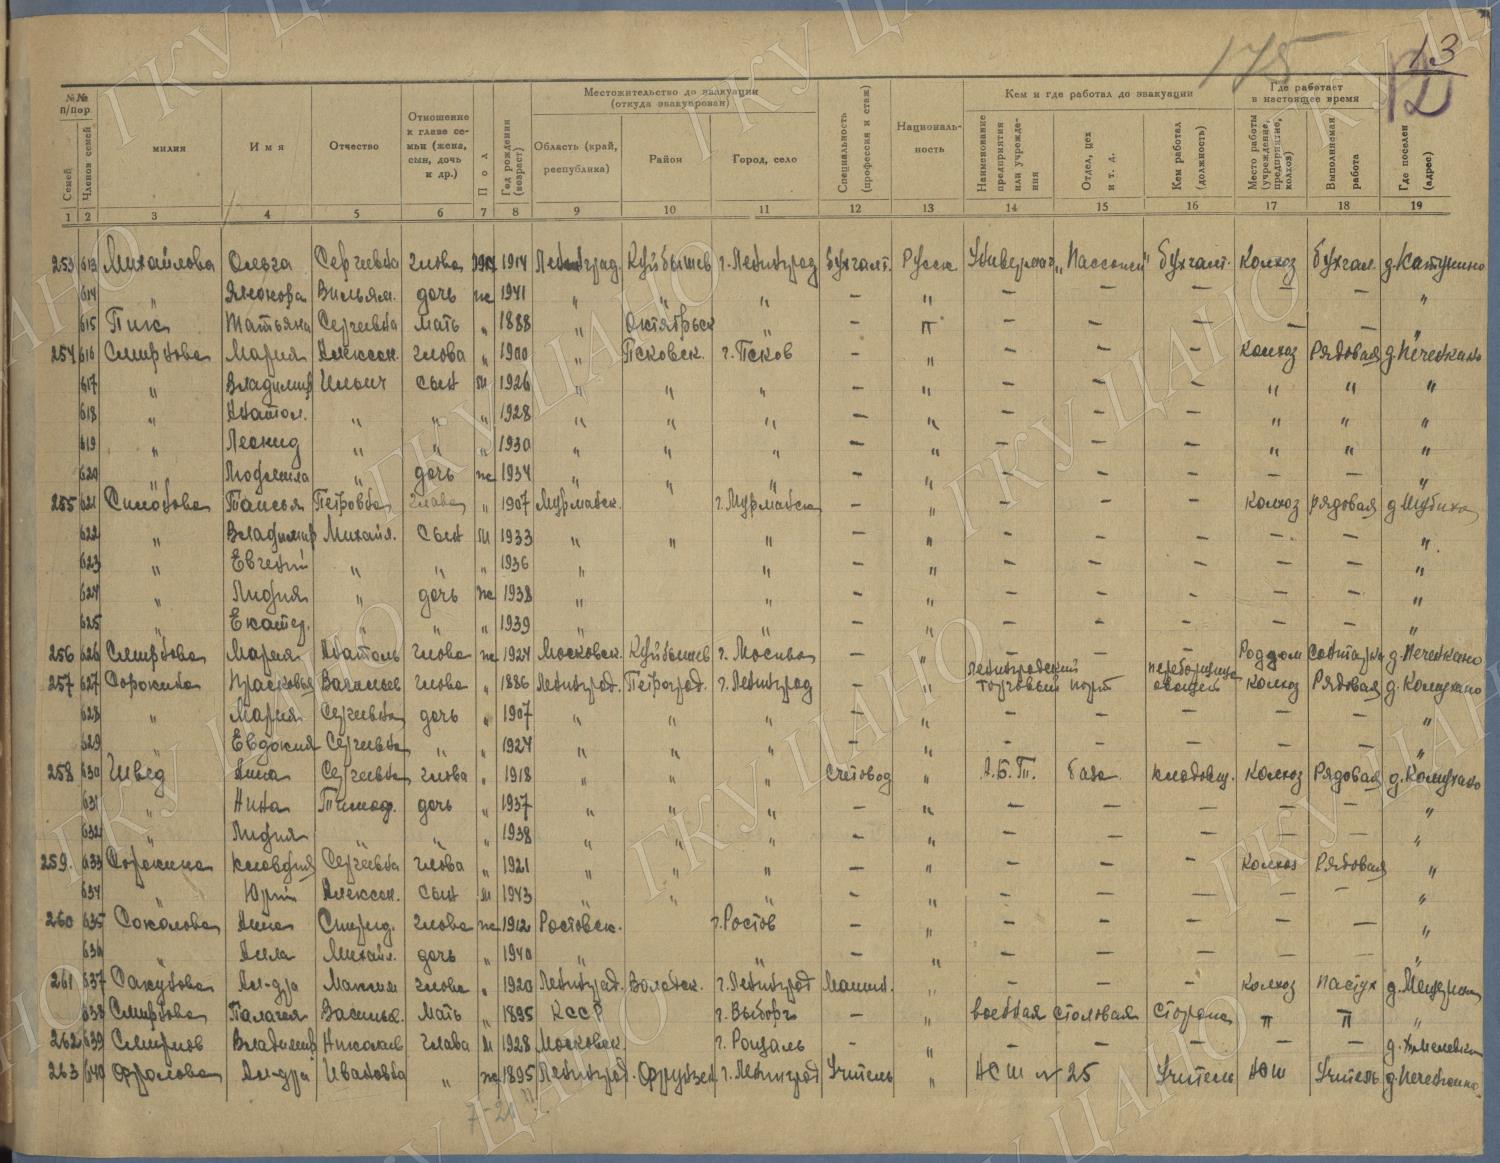 175
13
12
№№ п/пор
Местожительство до эвакуации (откуда эвакуирован)
Кем и где работал до эвакуации
Где работает в настоящее время
Семей
Членов семей
милия
Имя
Отчество
Отношение к главе семьи (жена, сын, дочь и др.)
Пол
Год рождения (возраст)
Область (край, республика)
Район
Город, село
Специальность (профессия и стаж)
Национальность
Наименование предприятия или учреждения
Отдел, цех и т. д.
Кем работал (должность)
Место работы (учреждение, предприятие, колхоз)
Выполняемая работа
Где поселен (адрес)
1 2 3 4 5 6 7 8 9 10 11 12 13 14 15 16 17 18 19
253 613 Михайлова Ольга Сергеевна глава 1914 Ленинград. Куйбышев г. Ленинград бухгалт. Русск Универмаг "Пассаж" бухгалт. Колхоз бухгал. д. Катунино
614 " Вильям. дочь ж 1941 " " " — " — — — — — "
615 Пик Татьяна Сергеевна мать " 1888 " Октябрьск " — " — — — — — "
254 616 Смирнова Мария Алексан. глава " 1900 " Псковск. г. Псков — " — — — колхоз Рядовая
617 " Владимир Ильич сын М 1926 " " " — " — — — " " "
618 " Анатол. " " " 1928 " " " — " — — — " " "
619 " Леонид " " " 1930 " " " — " — — — " " "
620 " Людмила " дочь ж 1934 " " " — " — — — — — "
255 621 Таисья Петровна глава " 1907 Мурманск. г. Мурманск — " — — — колхоз рядовая д. Шубиха
622 " Владимир Михайл. сын М 1933 " " " — " — — — — — "
623 " Евгений " " " 1936 " " — " — — — — — "
624 " Лидия " дочь ж 1938 " " — " — — — — — "
625 " Екатер. " " " 1939 " " — " — — — — — "
256 626 Смирнова Мария Анатоль глава ж 1924 Московск. Куйбышев г. Москва — " — — — Роддом санитарка
257 627 Сорокина Прасковья Васильев глава " 1886 Ленинград. Петроград. г. Ленинград — " Ленинградский торговый порт переборщица овощей колхоз Рядовая
628 " Мария Сергеевна дочь " 1907 " " " — " — — — — — "
629 " Евдокия Сергеевна " " 1924 " " " — " — — — — — "
258 630 Швед Анна Сергеевна глава " 1918 " " " Счетовод " Л.Б.Т. база кладовщ. Колхоз Рядовая
631 " Нина Тимоф. дочь " 1937 " " " — " — — — — — "
632 " Лидия " " " 1938 " " " — " — — — — — "
259. 633 Сорокина Клавдия Сергеевна глава " 1921 " " " — " — — — колхоз Рядовая "
634 " Юрий Алексан. сын М 1943 " " " — " — — — — — "
260 635 Соколова Анна Спирид. глава ж 1912 Ростовск. г. Ростов — " — — — — — "
636 " Алла Михайл. дочь " 1940 " " — " — — — — — "
261 637 Ал-дра Максим глава " 1920 Ленинград. Волховск. г. Ленинград Машин. " — — — колхоз пастух
638 Смирнова Палагея Василье. Мать " 1895 КССР г. Выборг — " военная столовая сторож " " "
262 639 Смирнов Владимир Николаев глава М 1928 Московск. г. Рошаль — " — — — — — д. Хмелевка
263 640 Фролова Ал-дра Ивановна " ж 1895 Ленинград. Фрунзен г. Ленинград Учитель " НСШ № 25 Учитель НСШ Учитель
7-21
ГКУ ЦАНО